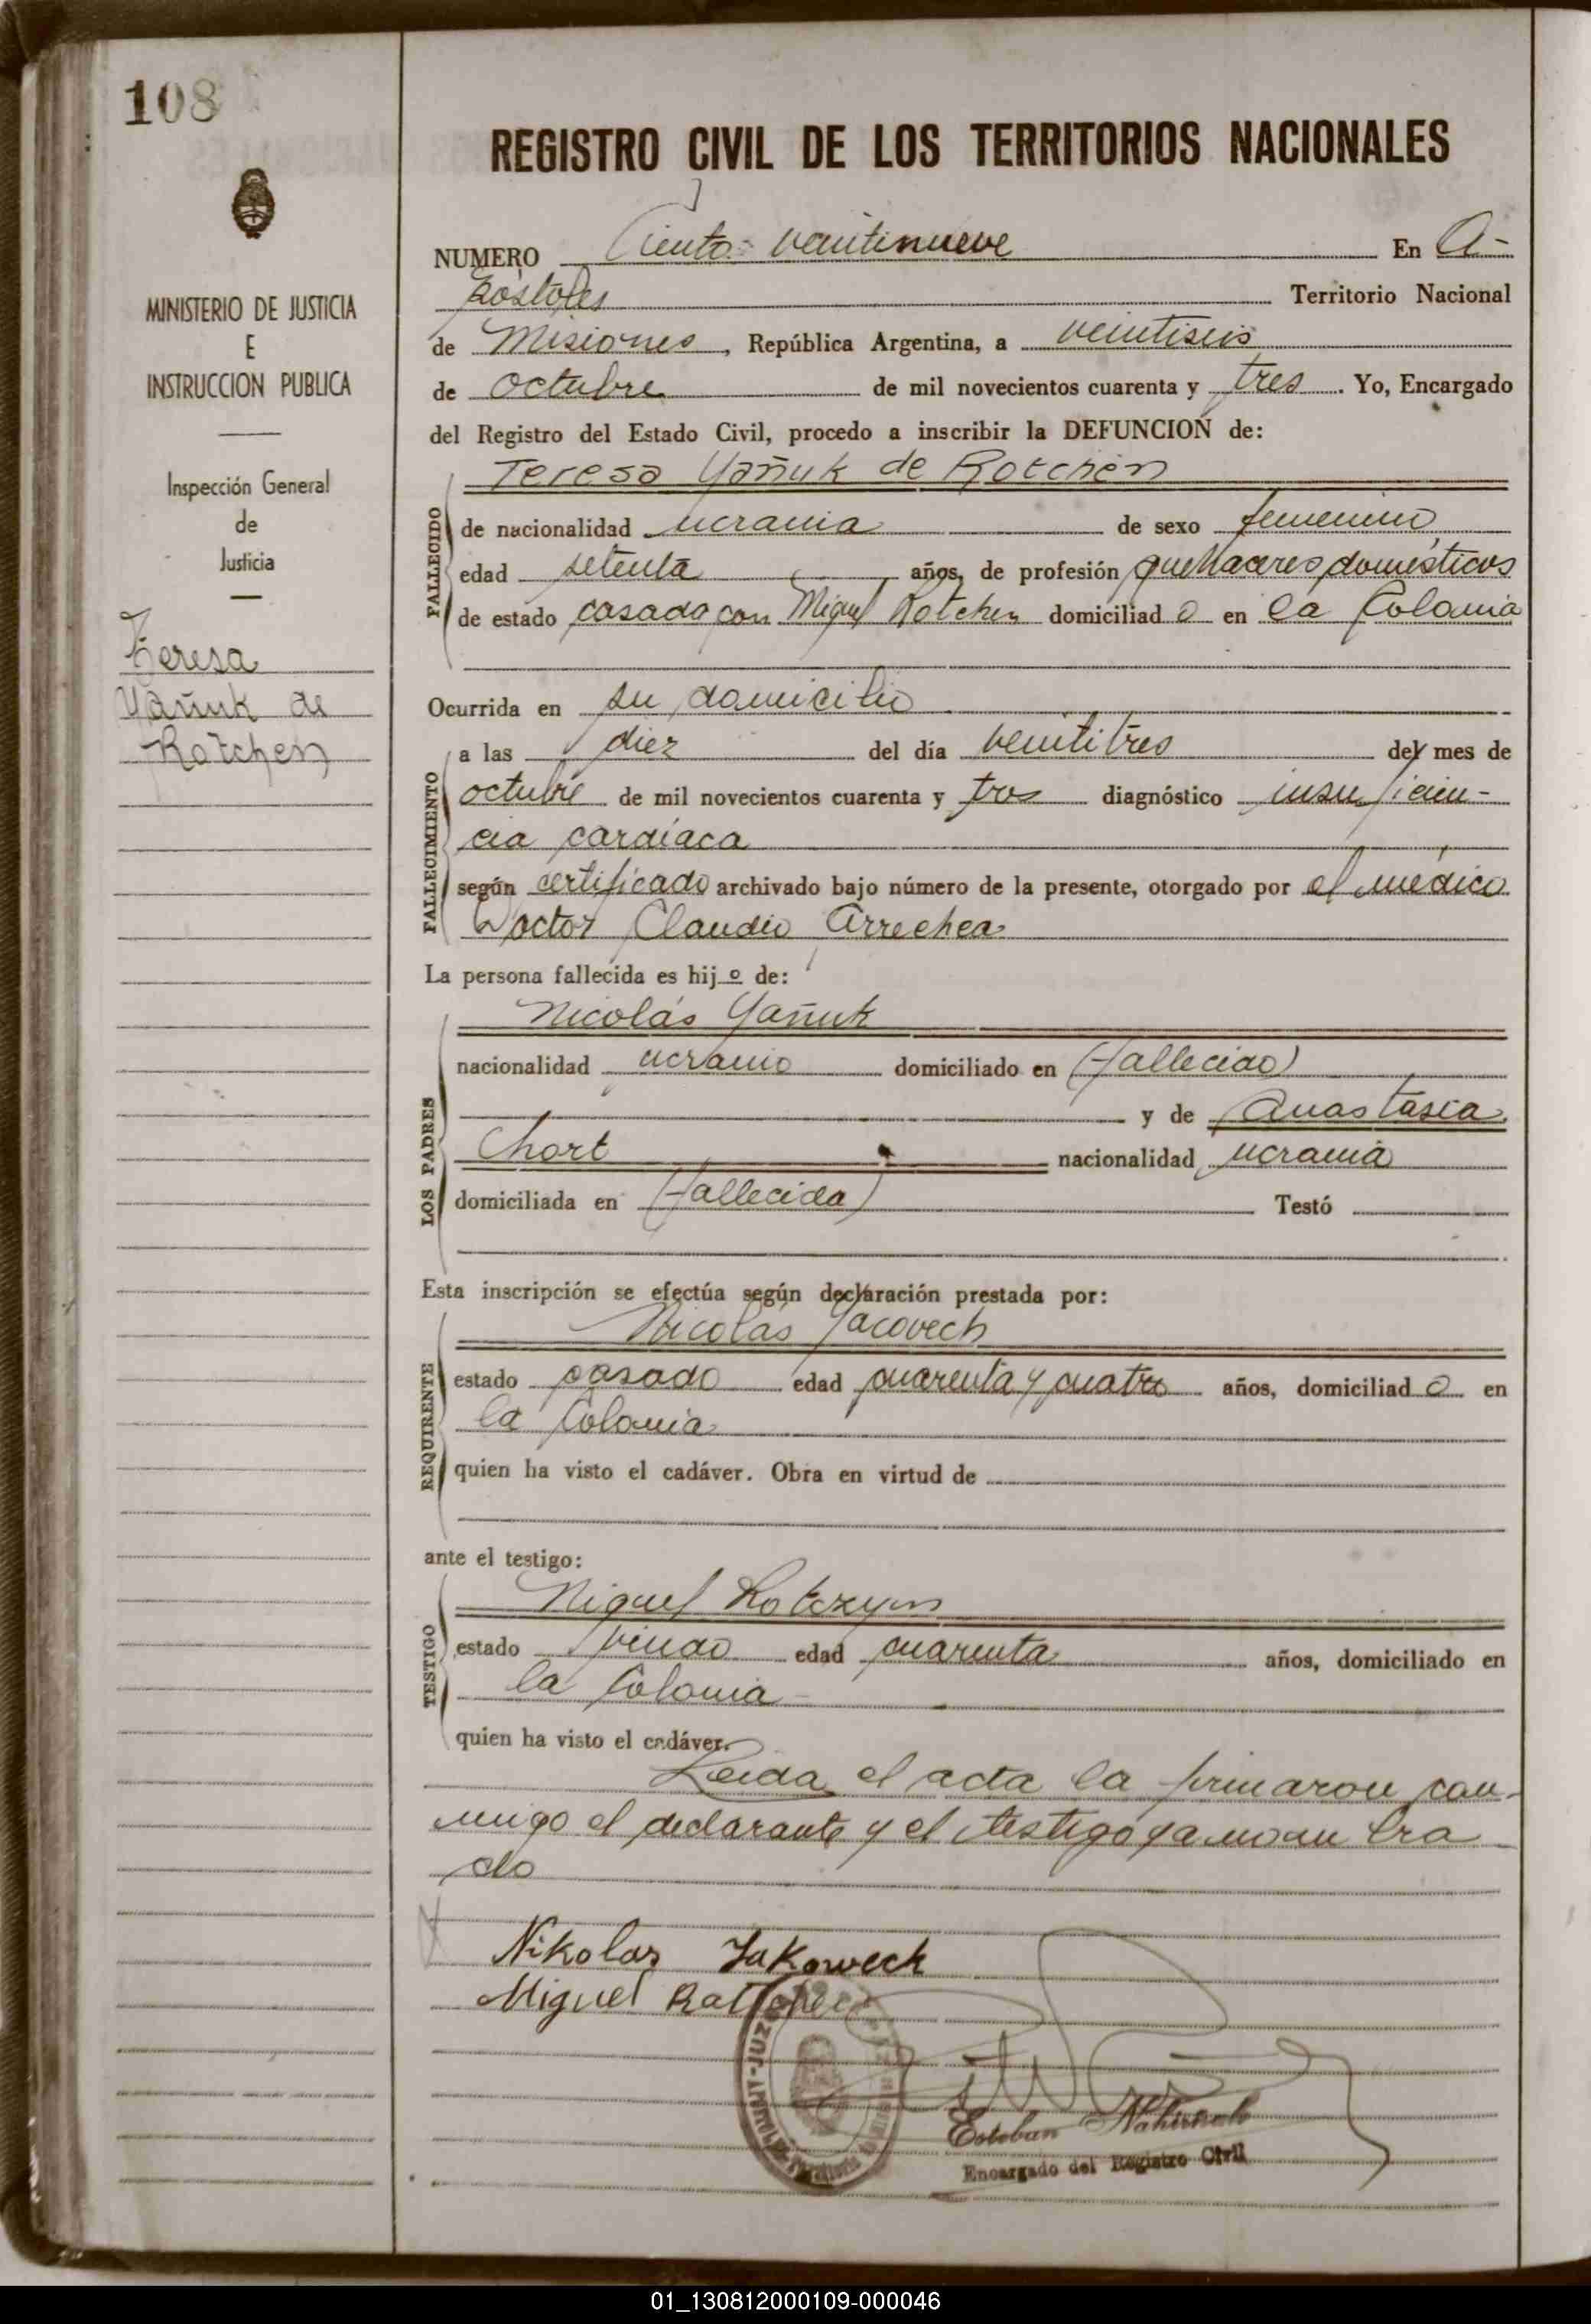 108
REGISTRO CIVIL DE LOS TERRITORIOS NACIONALES
MINISTERIO DE JUSTICIA
E
INSTRUCCION PUBLICA
Inspección General
de
Justicia
Teresa
Yañuk de
Rotchen
NUMERO Ciento veintinueve En A-
póstoles Territorio Nacional
de Misiones, República Argentina, a veintiseis
de octubre de mil novecientos cuarenta y tres. Yo, Encargado
del Registro del Estado Civil, procedo a inscribir la DEFUNCION de:
Teresa Yañuk de Rotchen
FALLECIDO
de nacionalidad ucrania de sexo femenino
edad setenta años, de profesión quehaceres domésticos
de estado casada con Miguel Rotchen domiciliad o en la Colonia
Ocurrida en su domicilio
FALLECIMIENTO
a las diez del día veintitres del mes de
octubre de mil novecientos cuarenta y tres diagnóstico insuficien-
cia cardíaca
según certificado archivado bajo número de la presente, otorgado por el médico
Doctor Claudio Arrechea
La persona fallecida es hij o de:
LOS PADRES
Nicolás Yañuk
nacionalidad ucranio domiciliado en (fallecido)
y de Anastasia
Chort nacionalidad ucrania
domiciliada en (fallecida) Testó
Esta inscripción se efectúa según declaración prestada por:
REQUIRENTE
Nicolás Jacovech
estado casado edad cuarenta y cuatro años, domiciliad o en
la Colonia
quien ha visto el cadáver. Obra en virtud de
ante el testigo:
TESTIGO
Miguel Rotczyn
estado viudo edad cuarenta años, domiciliado en
la Colonia
quien ha visto el cadáver.
Leida el acta la firmaron con-
migo el declarante y el testigo ya nom bra
do
Nikolas Jakoweck
Miguel
Esteban
Encargado del Registro Civil
01_130812000109-000046